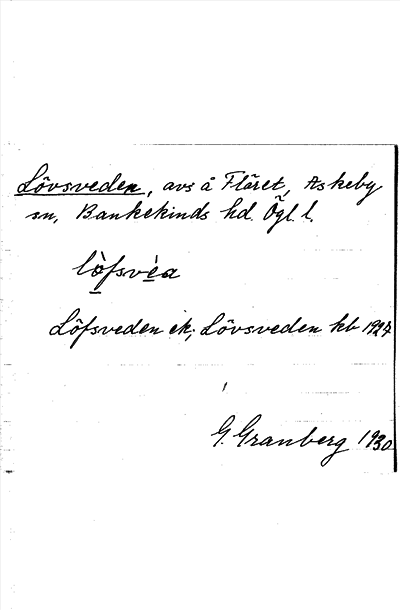 Lövsveden, avs å Fläret, Askeby
sn, Bankekinds hd. Ögl. l.
lòfsvéa
Löfsveden ek; Lövsveden kb 1924
G. Granberg 1930